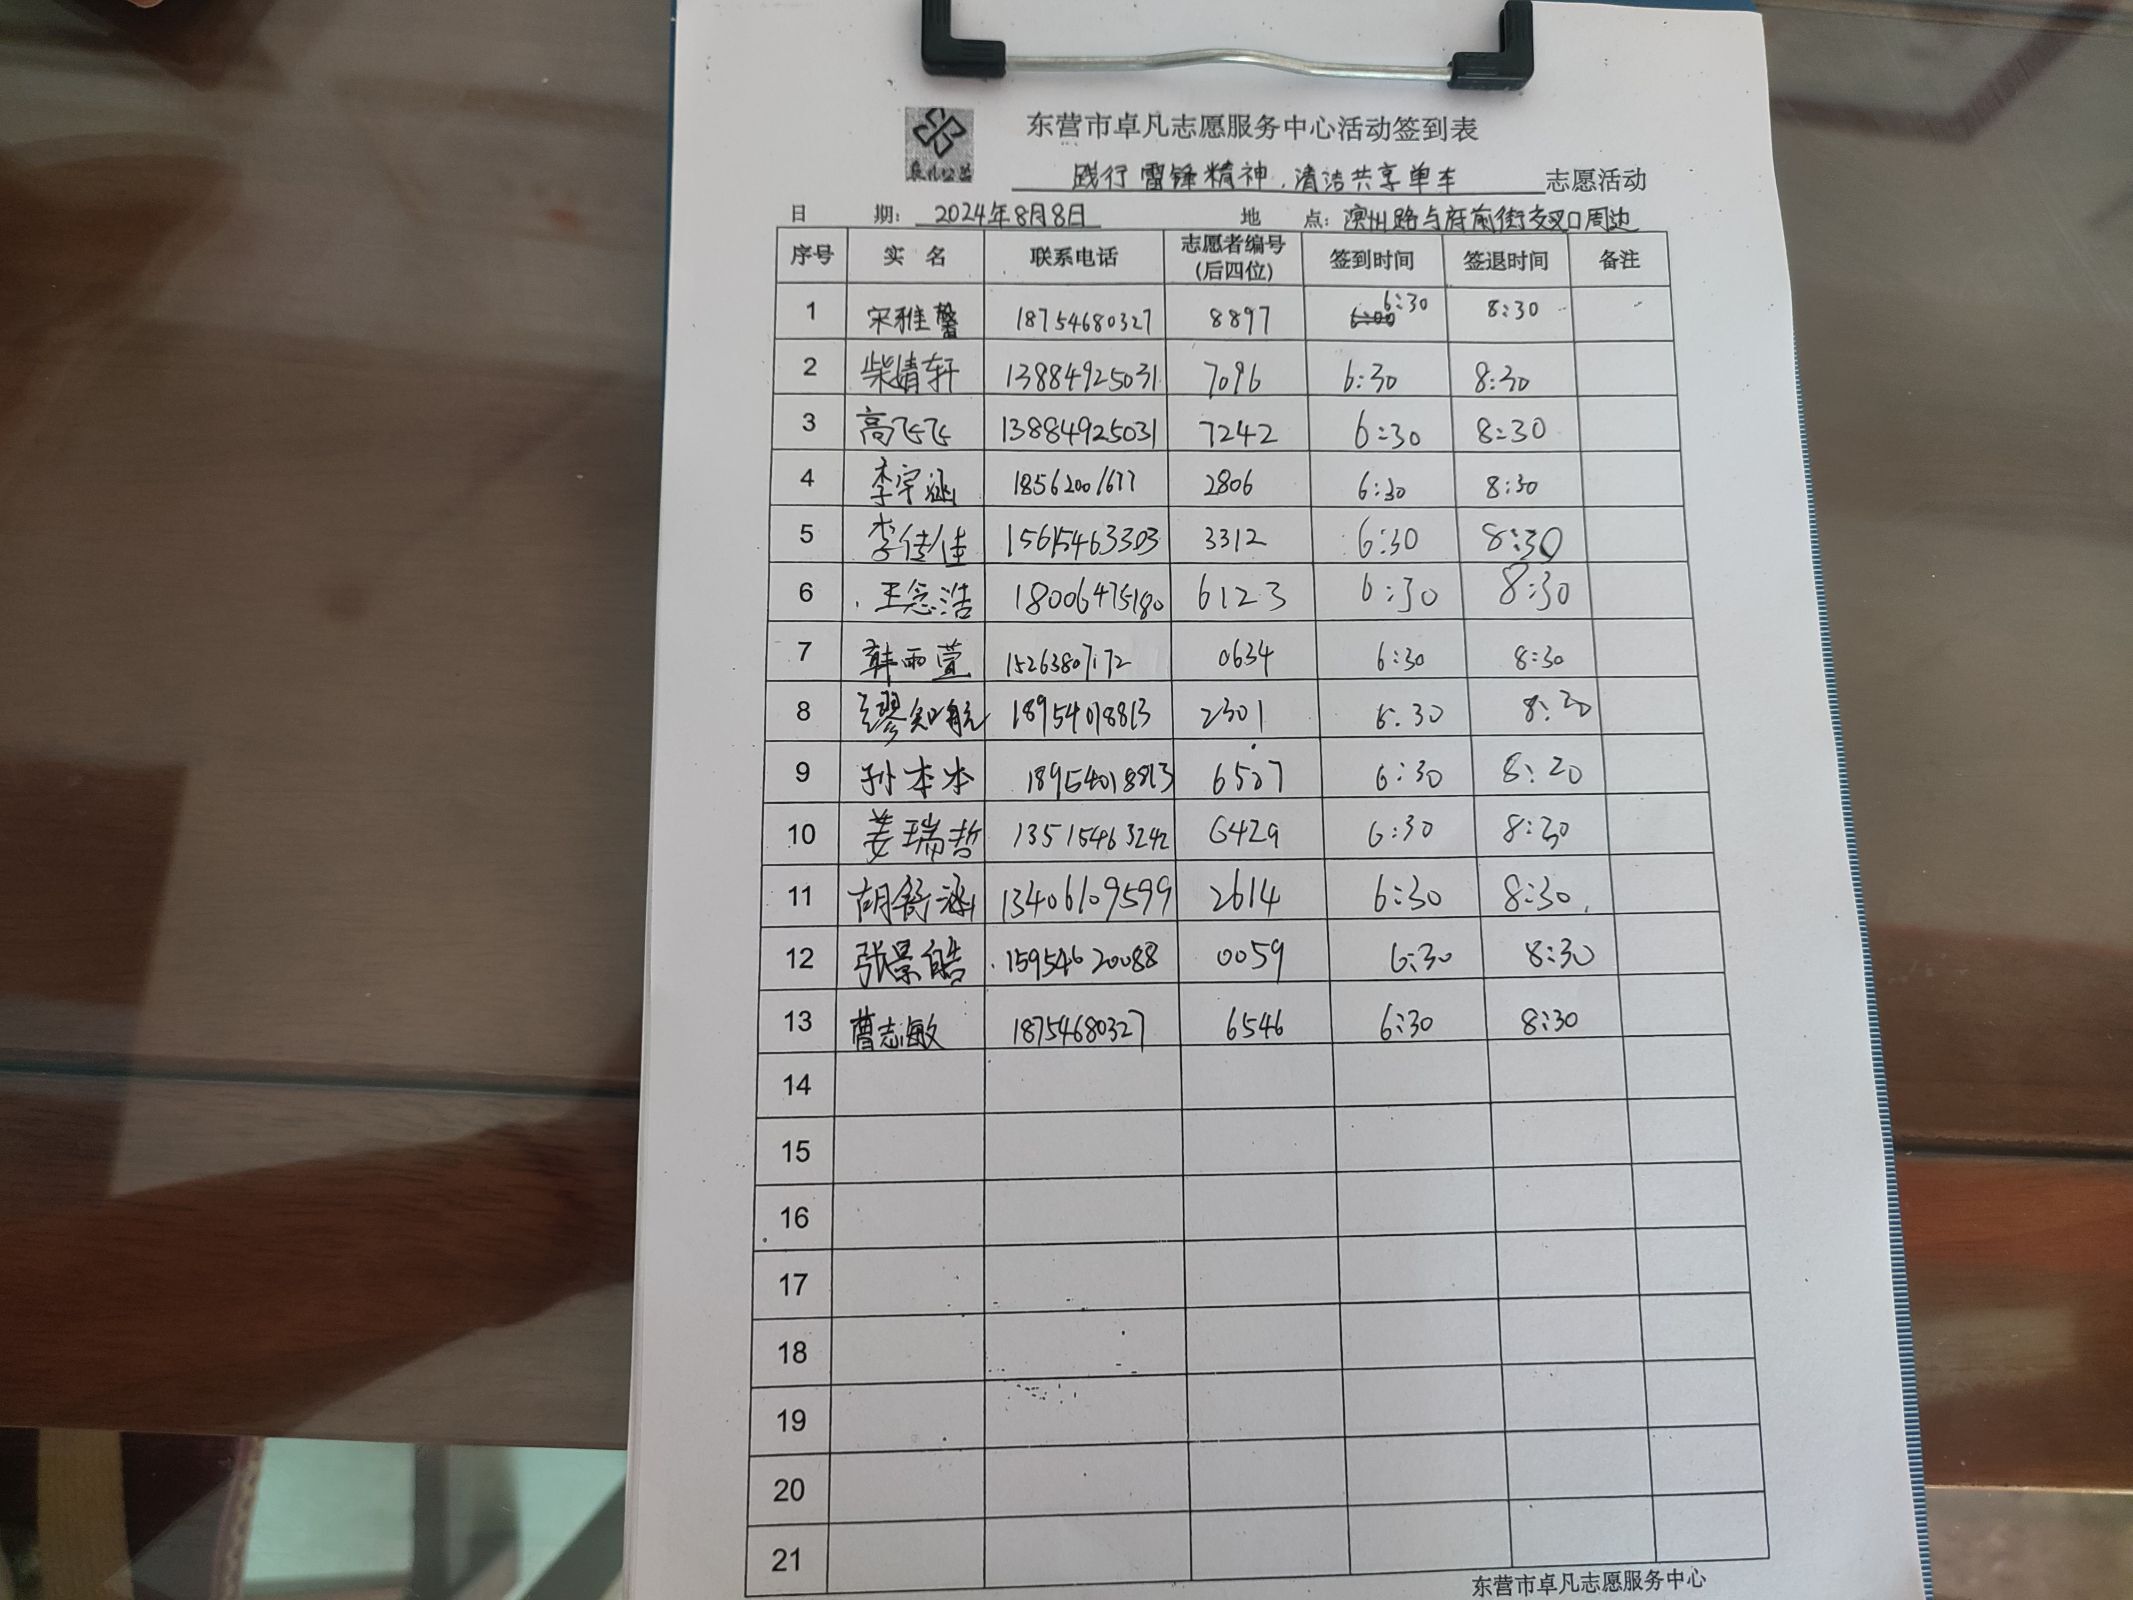 东营市卓凡志愿服务中心活动签到表
卓凡公益
践行雷锋精神,清洁共享单车 志愿活动
日 期: 2024年8月8日 地 点: 滨州路与府前街交叉口周边
序号 实 名 联系电话 志愿者编号(后四位) 签到时间 签退时间 备注
1 宋雅馨 18754680327 8897 6:30 8:30
2 柴婧轩 13884925031 7096 6:30 8:30
3 高飞飞 13884925031 7242 6:30 8:30
4 李宇涵 18562001677 2806 6:30 8:30
5 李佳佳 15615463303 3312 6:30 8:30
6 王念浩 18006475180 6123 6:30 8:30
7 韩雨萱 15263807172 0634 6:30 8:30
8 缪知航 18954018813 2301 6:30 8:30
9 孙本本 18954018813 6507 6:30 8:20
10 姜瑞哲 13515463242 6429 6:30 8:30
11 胡舒涵 13406109599 2614 6:30 8:30
12 张景皓 15954620088 0059 6:30 8:30
13 曹志敏 18754680327 6546 6:30 8:30
14
15
16
17
18
19
20
21
东营市卓凡志愿服务中心